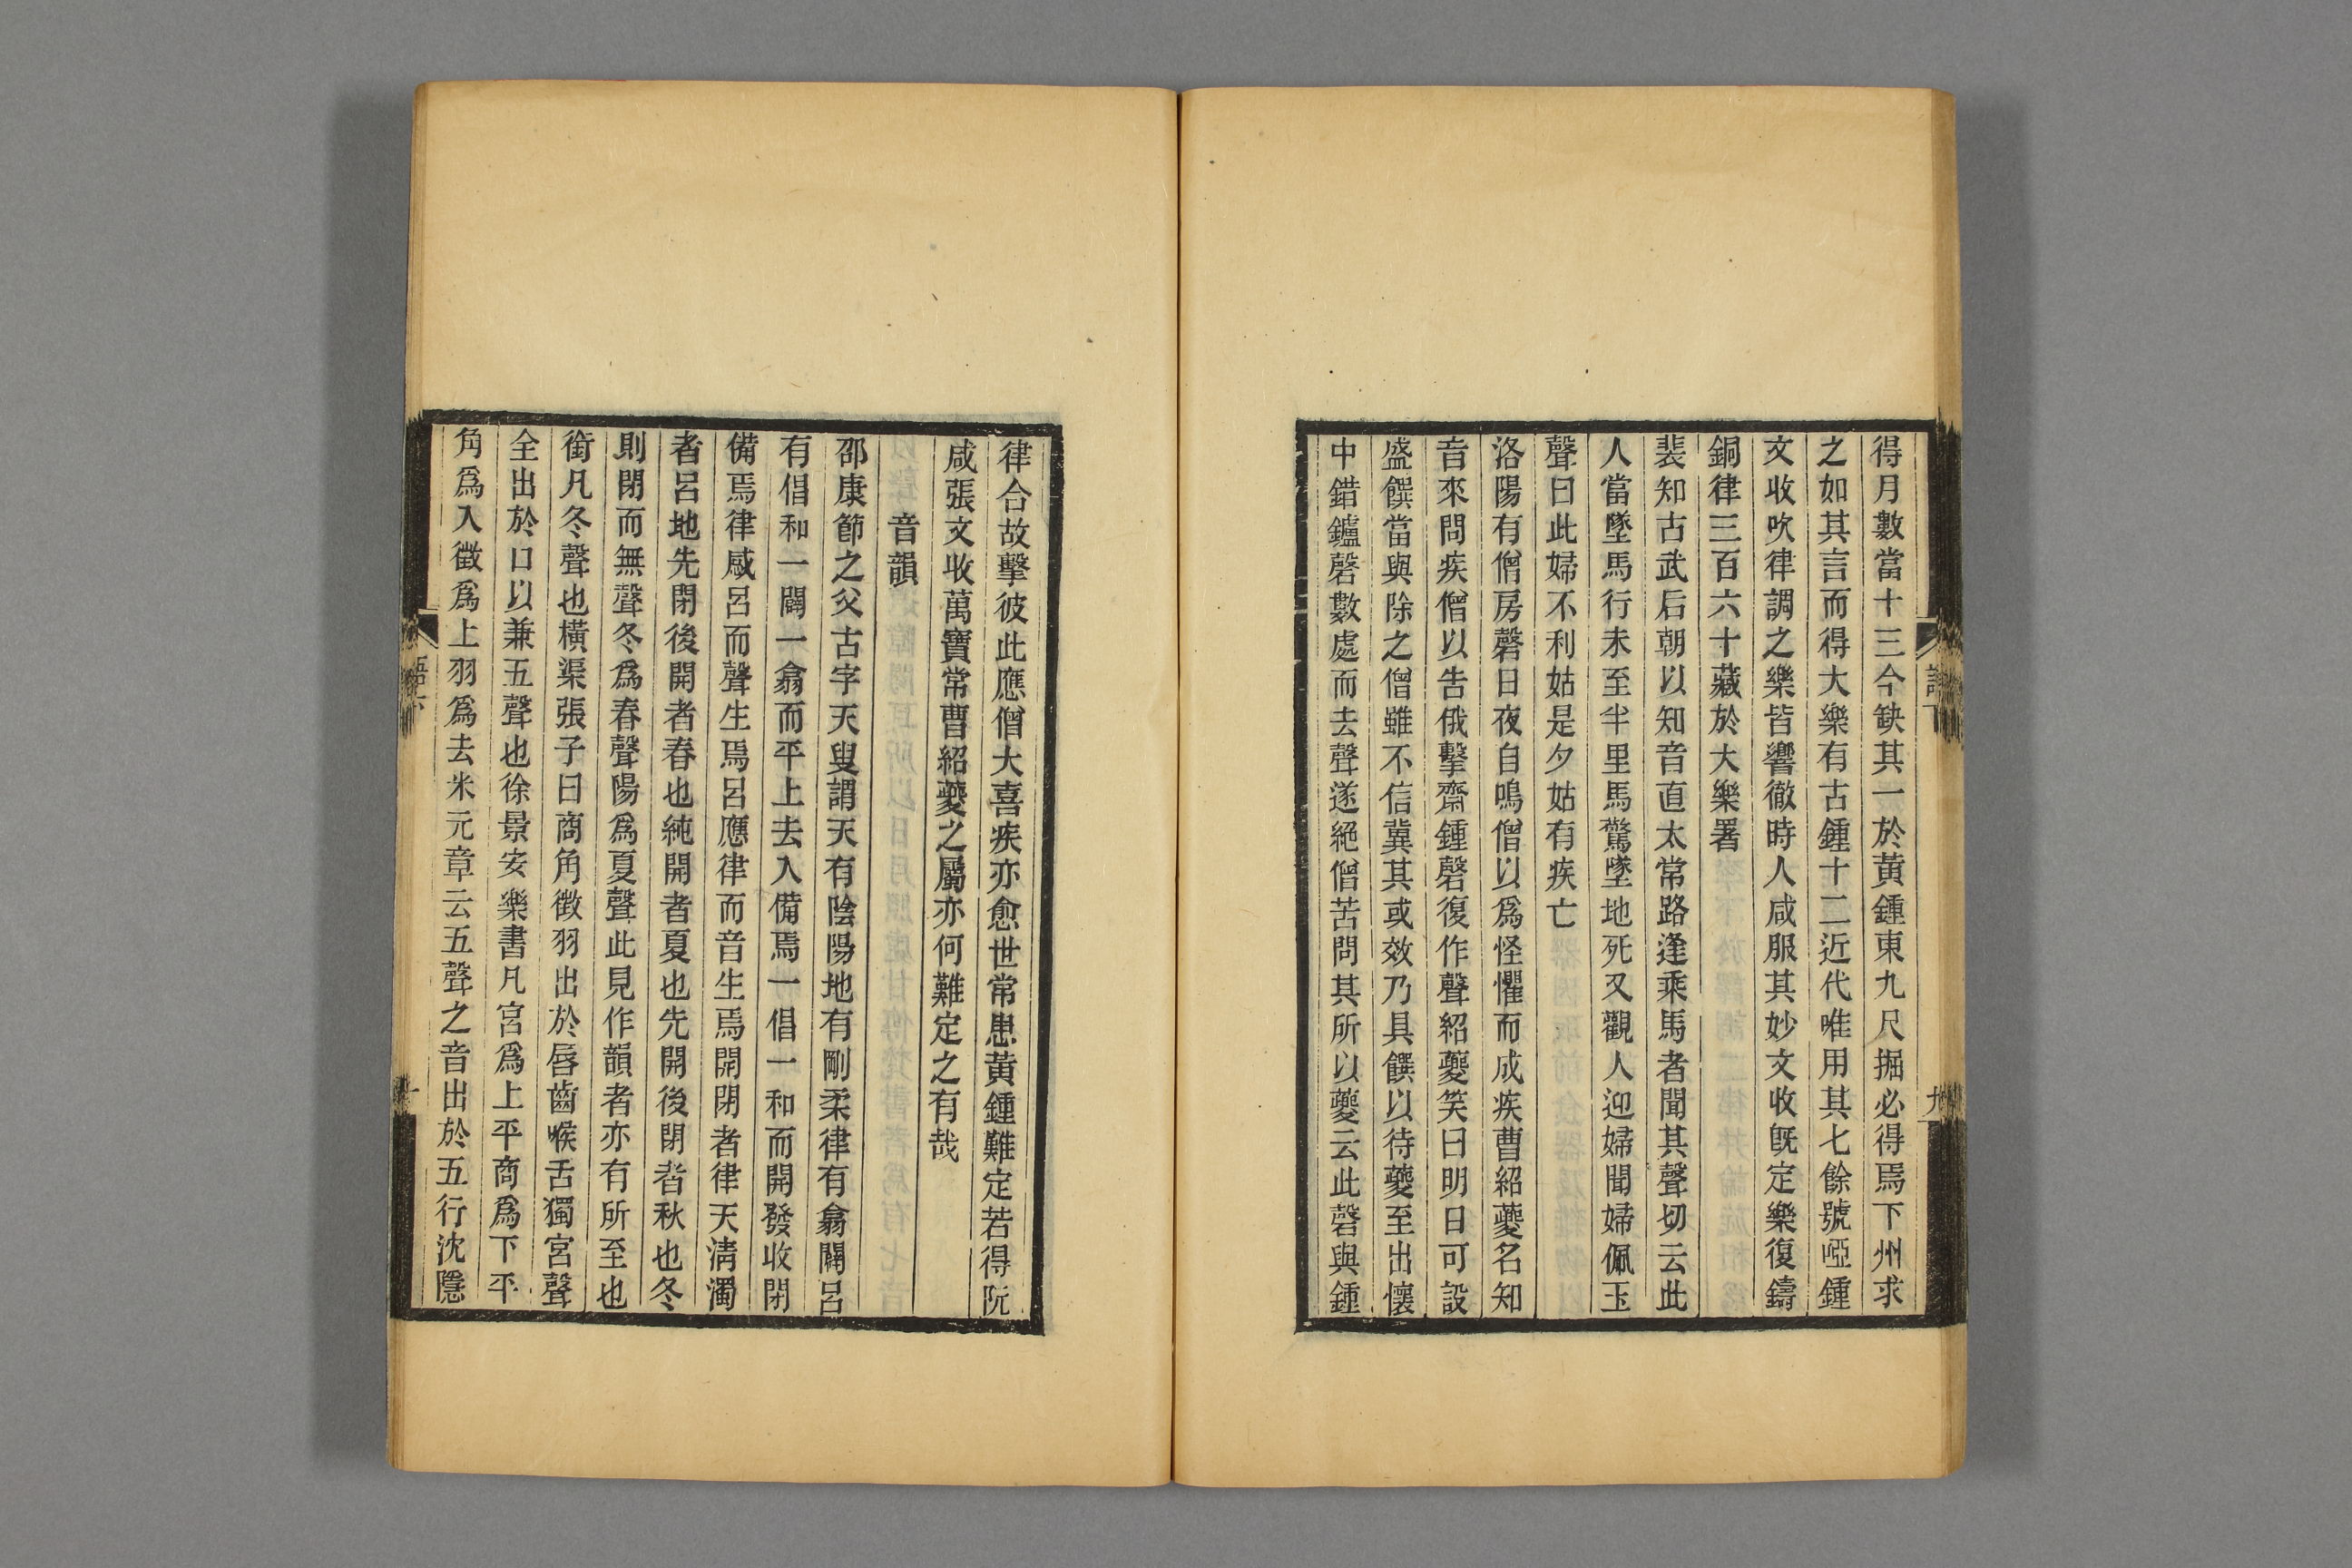 得月數當十三今缺其一於黃鍾東九尺掘必得焉下州求
之如其言而得大樂有古鍾十二近代唯用其七餘號啞鍾
文收吹律調之樂皆響徹時人咸服其妙文收旣定樂復鑄
銅律三百六十藏於大樂署
裴知古武后朝以知音直太常路逢乘馬者聞其聲切云此
人當墜馬行未至半里馬驚墜地死又觀人迎婦聞婦佩玉
聲曰此婦不利姑是夕姑有疾亡
洛陽有僧房磬日夜自鳴僧以爲怪懼而成疾曹紹夔名知
音來問疾僧以告俄擊齋鍾磬復作聲紹夔笑曰明日可設
盛饌當與除之僧雖不信冀其或效乃具饌以待夔至出懷
中錯鑪磬數處而去聲遂絕僧苦問其所以夔云此磬與鍾
九
律合故擊彼此應僧大喜疾亦愈世常患黃鍾難定若得阮
咸張文收萬寶常曹紹夔之屬亦何難定之有哉
音韻
邵康節之父古字天叟謂天有陰陽地有剛柔律有翕闢呂
有倡和一闢一翕而平上去入備焉一倡一和而開發收閉
備焉律感呂而聲生焉呂應律而音生焉開閉者律天淸濁
者呂地先閉後開者春也純開者夏也先開後閉者秋也冬
則閉而無聲冬爲春聲陽爲夏聲此見作韻者亦有所至也
銜凡冬聲也橫渠張子曰商角徵羽出於唇齒喉舌獨宮聲
全出於口以兼五聲也徐景安樂書凡宮爲上平商爲下平
角爲入徵爲上羽爲去米元章云五聲之音出於五行沈隱